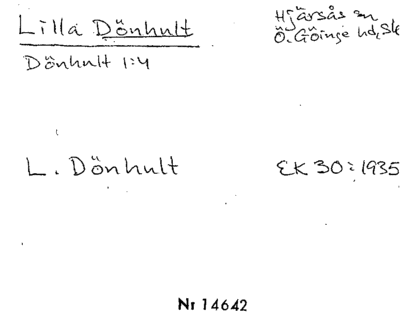 Lilla Dönhult
Hjärsås sn
Ö. Göinge hd, Sk
Dönhult 1:4
L. Dönhult
EK 30: 1935
Nr 14642